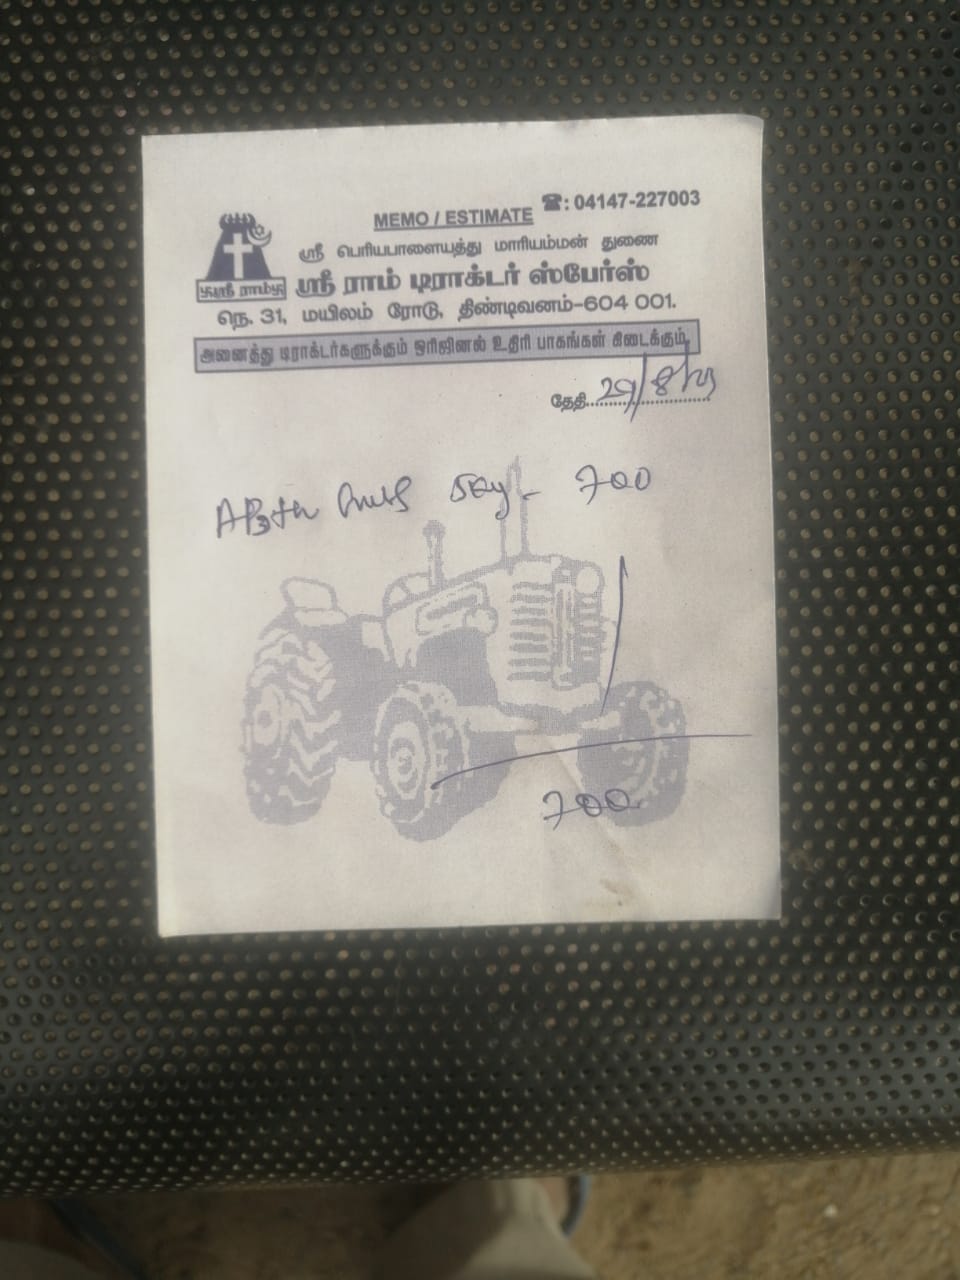 MEMO / ESTIMATE ☎: 04147-227003
ஸ்ரீ பெரியபாளையத்து மாரியம்மன் துணை
ஸ்ரீ ராம்
ஸ்ரீ ராம் டிராக்டர் ஸ்பேர்ஸ்
நெ. 31, மயிலம் ரோடு, திண்டிவனம்-604 001.
அனைத்து டிராக்டர்களுக்கும் ஒரிஜினல் உதிரி பாகங்கள் கிடைக்கும்
தேதி 29/8/
700
700